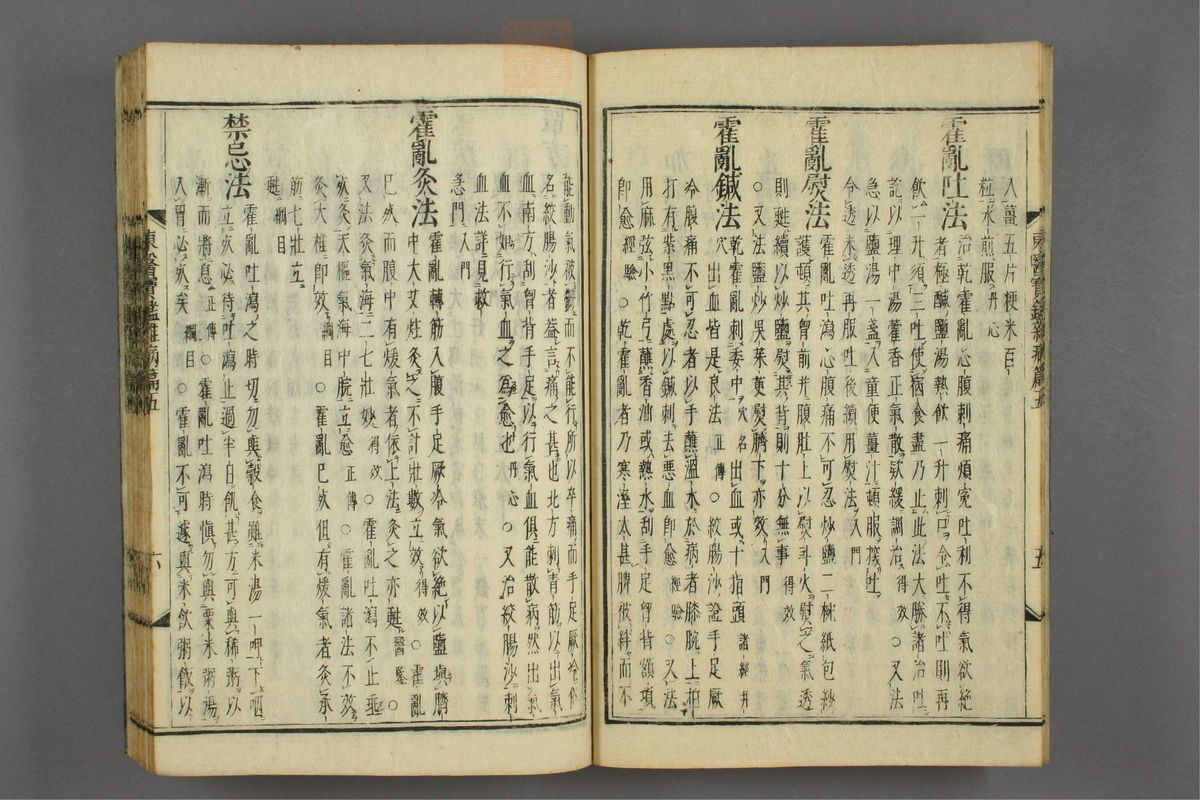 入薑五片粳米百
粒水煎服丹心
霍亂吐法
治乾霍亂心腹刺痛煩寃吐利不得氣欲絶
者極醎鹽湯熱飮一升刺口令吐不吐則再
飮一升須三吐使宿食盡乃止此法大勝諸治吐
訖以理中湯藿香正氣散欵緩調治得效○又法
急以鹽湯一盞入童便薑汁頓服探吐
令透未透再服吐後須用熨法入門
霍亂熨法
霍亂吐瀉心腹痛不可忍炒鹽二椀紙包紗
護頓其胷前幷腹肚上以熨斗火熨之氣透
則甦續以炒鹽熨其背則十分無事得效
○又法鹽炒吳茱更熨臍下亦效入門
霍亂鍼法
乾霍亂刺委中穴名出血或十指頭諸經井
穴出血皆是良法正傳○絞腸沙證手足厥
冷腹痛不可忍者以手蘸溫水於病者膝腕上拍
打有紫黑點處以鍼刺去惡血卽愈經驗○又法
用麻弦小竹弓蘸香油或熱水刮手足胷背額項
卽愈經驗○乾霍亂者乃寒溼太甚脾被絆而不
東醫寶鑑雜病篇五
五
能動氣被鬱而不能行所以卒痛而手足厥冷俗
名絞腸沙者蓋言痛之甚也北方刺靑筋以出氣
血南方刮胷背手足以行氣血俱能散病然出氣
血不如行氣血之爲愈也丹心○又治絞腸沙刺
血法詳見救
急門入門
霍亂灸法
霍亂轉筋入腹手足厥冷氣欲絶以鹽塡臍
中大艾炷灸之不計壯數立效得效○霍亂
已死而腹中有煖氣者依上法灸之亦甦醫鑑○
又法灸氣海二七壯妙得效○霍亂吐瀉不止垂
死灸天樞氣海中脘立愈正傳○霍亂諸法不效
灸大椎卽效綱目○霍亂已死但有煖氣者灸承
筋七壯立
甦綱目
禁忌法
霍亂吐瀉之時切勿與穀食雖米湯一呷下咽
立死必待吐瀉止過半日飢甚方可與稀粥以
漸而將息正傳○霍亂吐瀉時愼勿與粟米粥湯
入胃必死矣綱目○霍亂不可遽與米飮粥飯以
東醫寶鑑雜病篇五
六